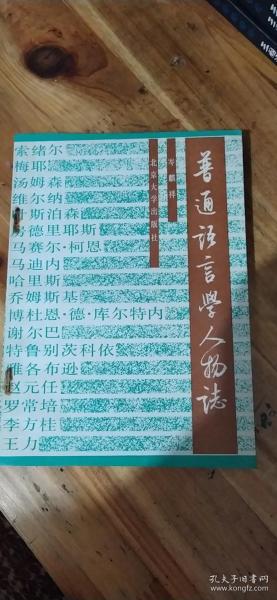 普通语言學人物誌
岑麒祥
北京大学出版社
索绪尔
梅耶
汤姆森
维尔纳
斯泊森
德里耶斯
马赛尔·柯恩
马迪内
哈里斯
乔姆斯基
博杜恩·德·库尔特内
谢尔巴
特鲁别茨科依
雅各布逊
赵元任
罗常培
李方桂
王力
孔夫子旧书网